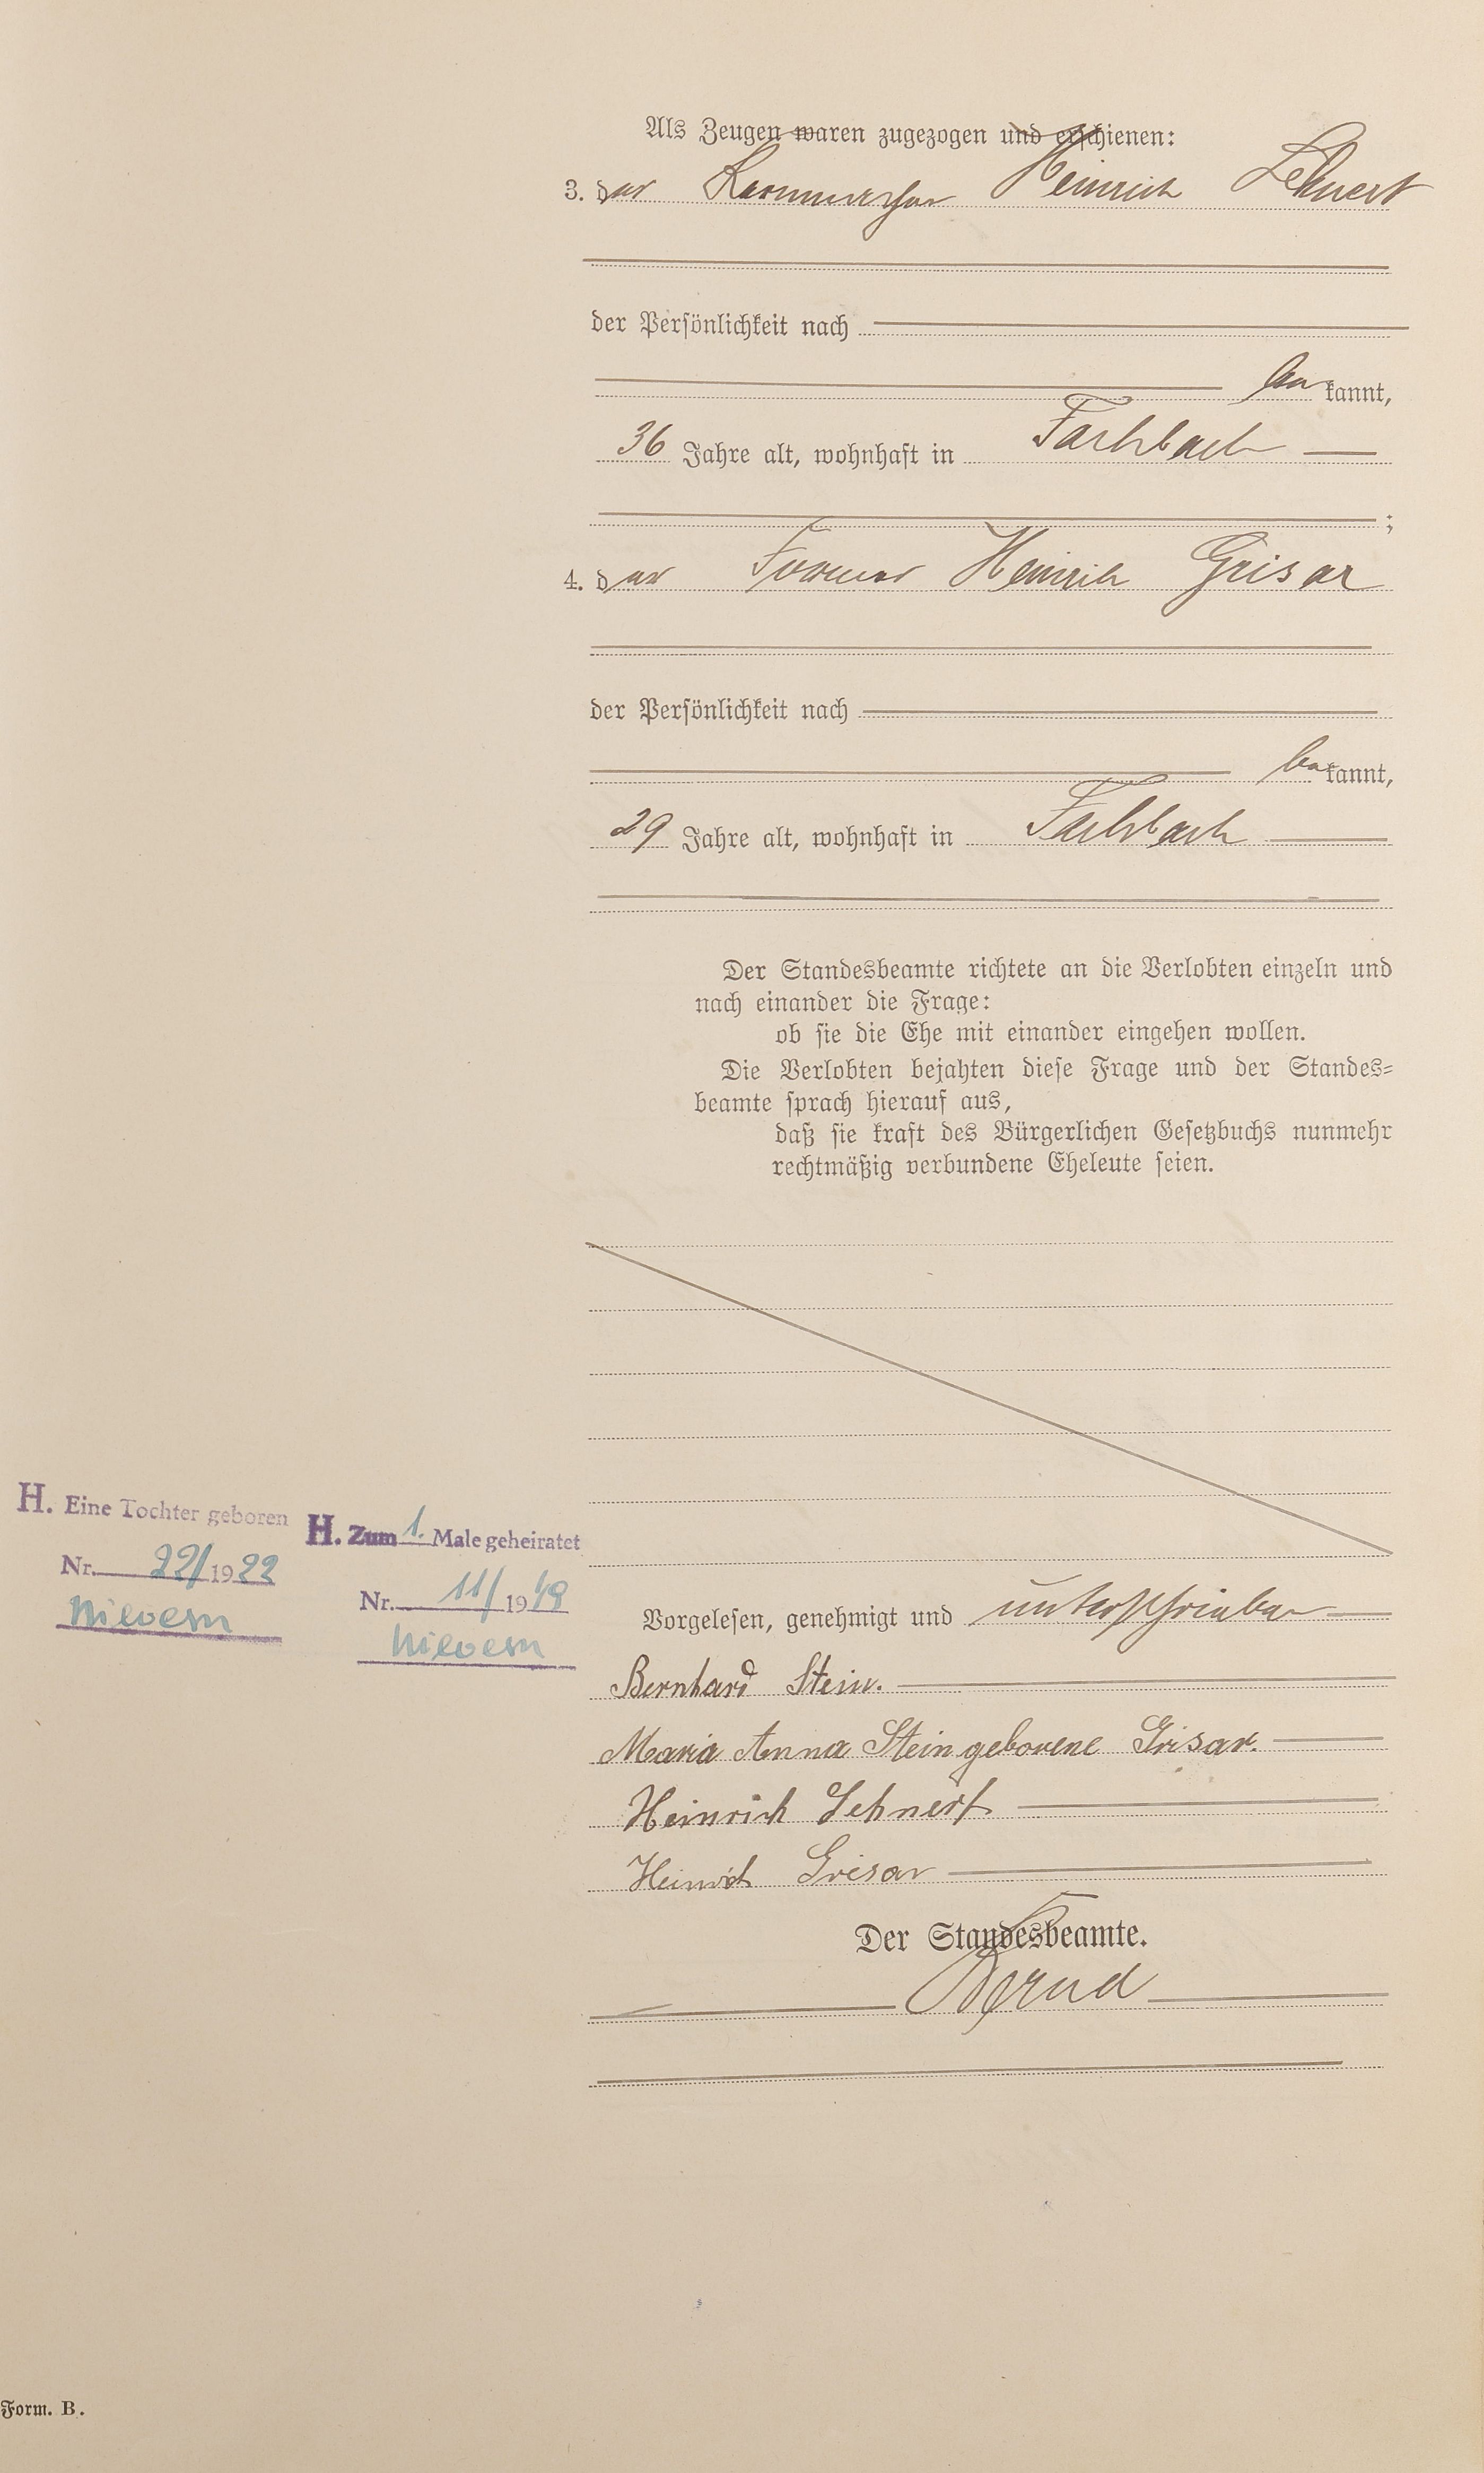 Als Zeugen waren zugezogen und erschienen:
3. der Kernmacher Heinrich Lehnert
der Persönlichkeit nach
bekannt,
36 Jahre alt, wohnhaft in Fachbach
;
4. der Former Heinrich Grisar
der Persönlichkeit nach
bekannt,
29 Jahre alt, wohnhaft in Fachbach
Der Standesbeamte richtete an die Verlobten einzeln und
nach einander die Frage:
ob sie die Ehe mit einander eingehen wollen.
Die Verlobten bejahten diese Frage und der Standes-
beamte sprach hierauf aus,
daß sie kraft des Bürgerlichen Gesetzbuchs nunmehr
rechtmäßig verbundene Eheleute seien.
H. Eine Tochter geboren
Nr. 22/1922
Nievern
H. Zum 1. Male geheiratet
Nr. 11/1948
Nievern
Vorgelesen, genehmigt und unterschrieben
Bernhard Stein.
Maria Anna Stein geborene Grisar.
Heinrich Lehnert
Heinrich Grisar
Der Standesbeamte.
Form. B.